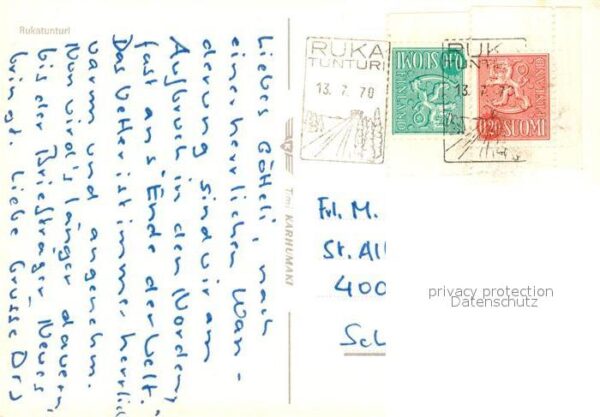 Rukatunturi
Liebes Götteli, nach
einer herrlichen Wan-
derung sind wir am
Aufbruch in den Norden,
fast an's "Ende der Welt."
Das Wetter ist immer herrlich
warm und angenehm.
Nun wird's länger dauern
bis der Briefträger Neues
bringt. Liebe Grüsse
Tmi KARHUMÄKI
RUKA
TUNTURI
13. 7. 70
SUOMI
FINLAND
RUK
13. 7. 70
FINLAND
0,20 SUOMI
Frl. M.
St. Al
400
Sch
privacy protection
Datenschutz